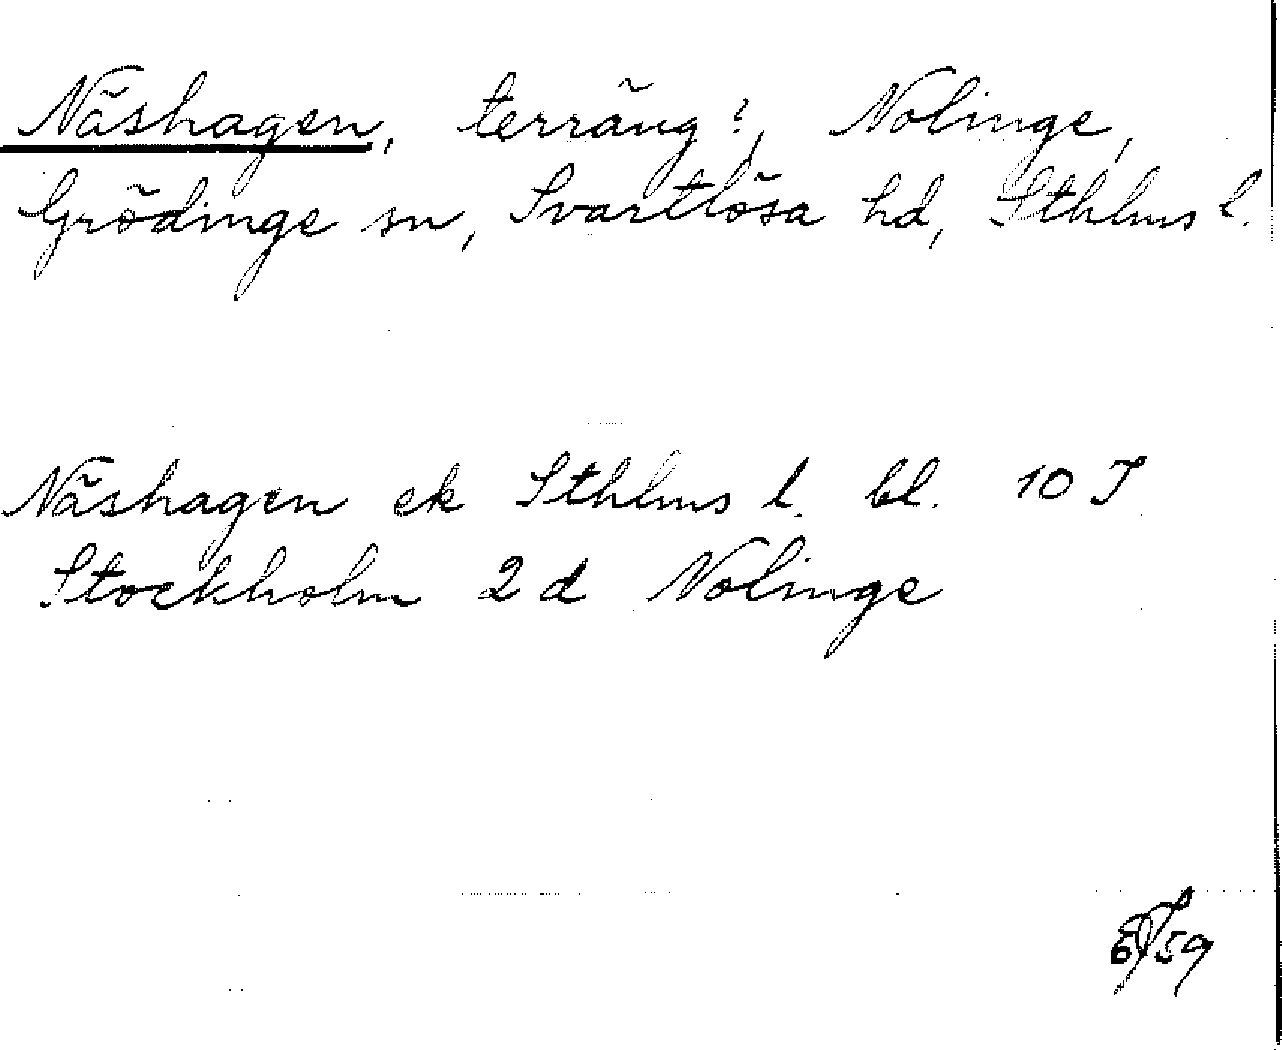 Näshagen, terräng?, Nolinge,
Grödinge sn, Svartlösa hd, Sthlms l.
Näshagen ek Sthlms l. bl. 10 J
Stockholm 2 d Nolinge